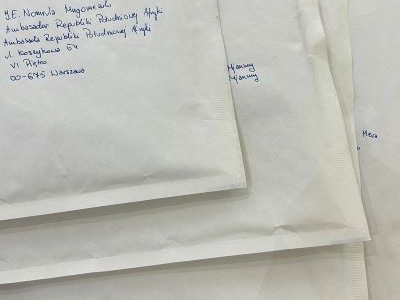 J.E. Nomvula Mngomezulu
Ambasador Republiki Południowej Afryki
Ambasada Republiki Południowej Afryki
ul. Koszykowa 54
VI Piętro
00-675 Warszawa
Mjanmy
Mjanmy